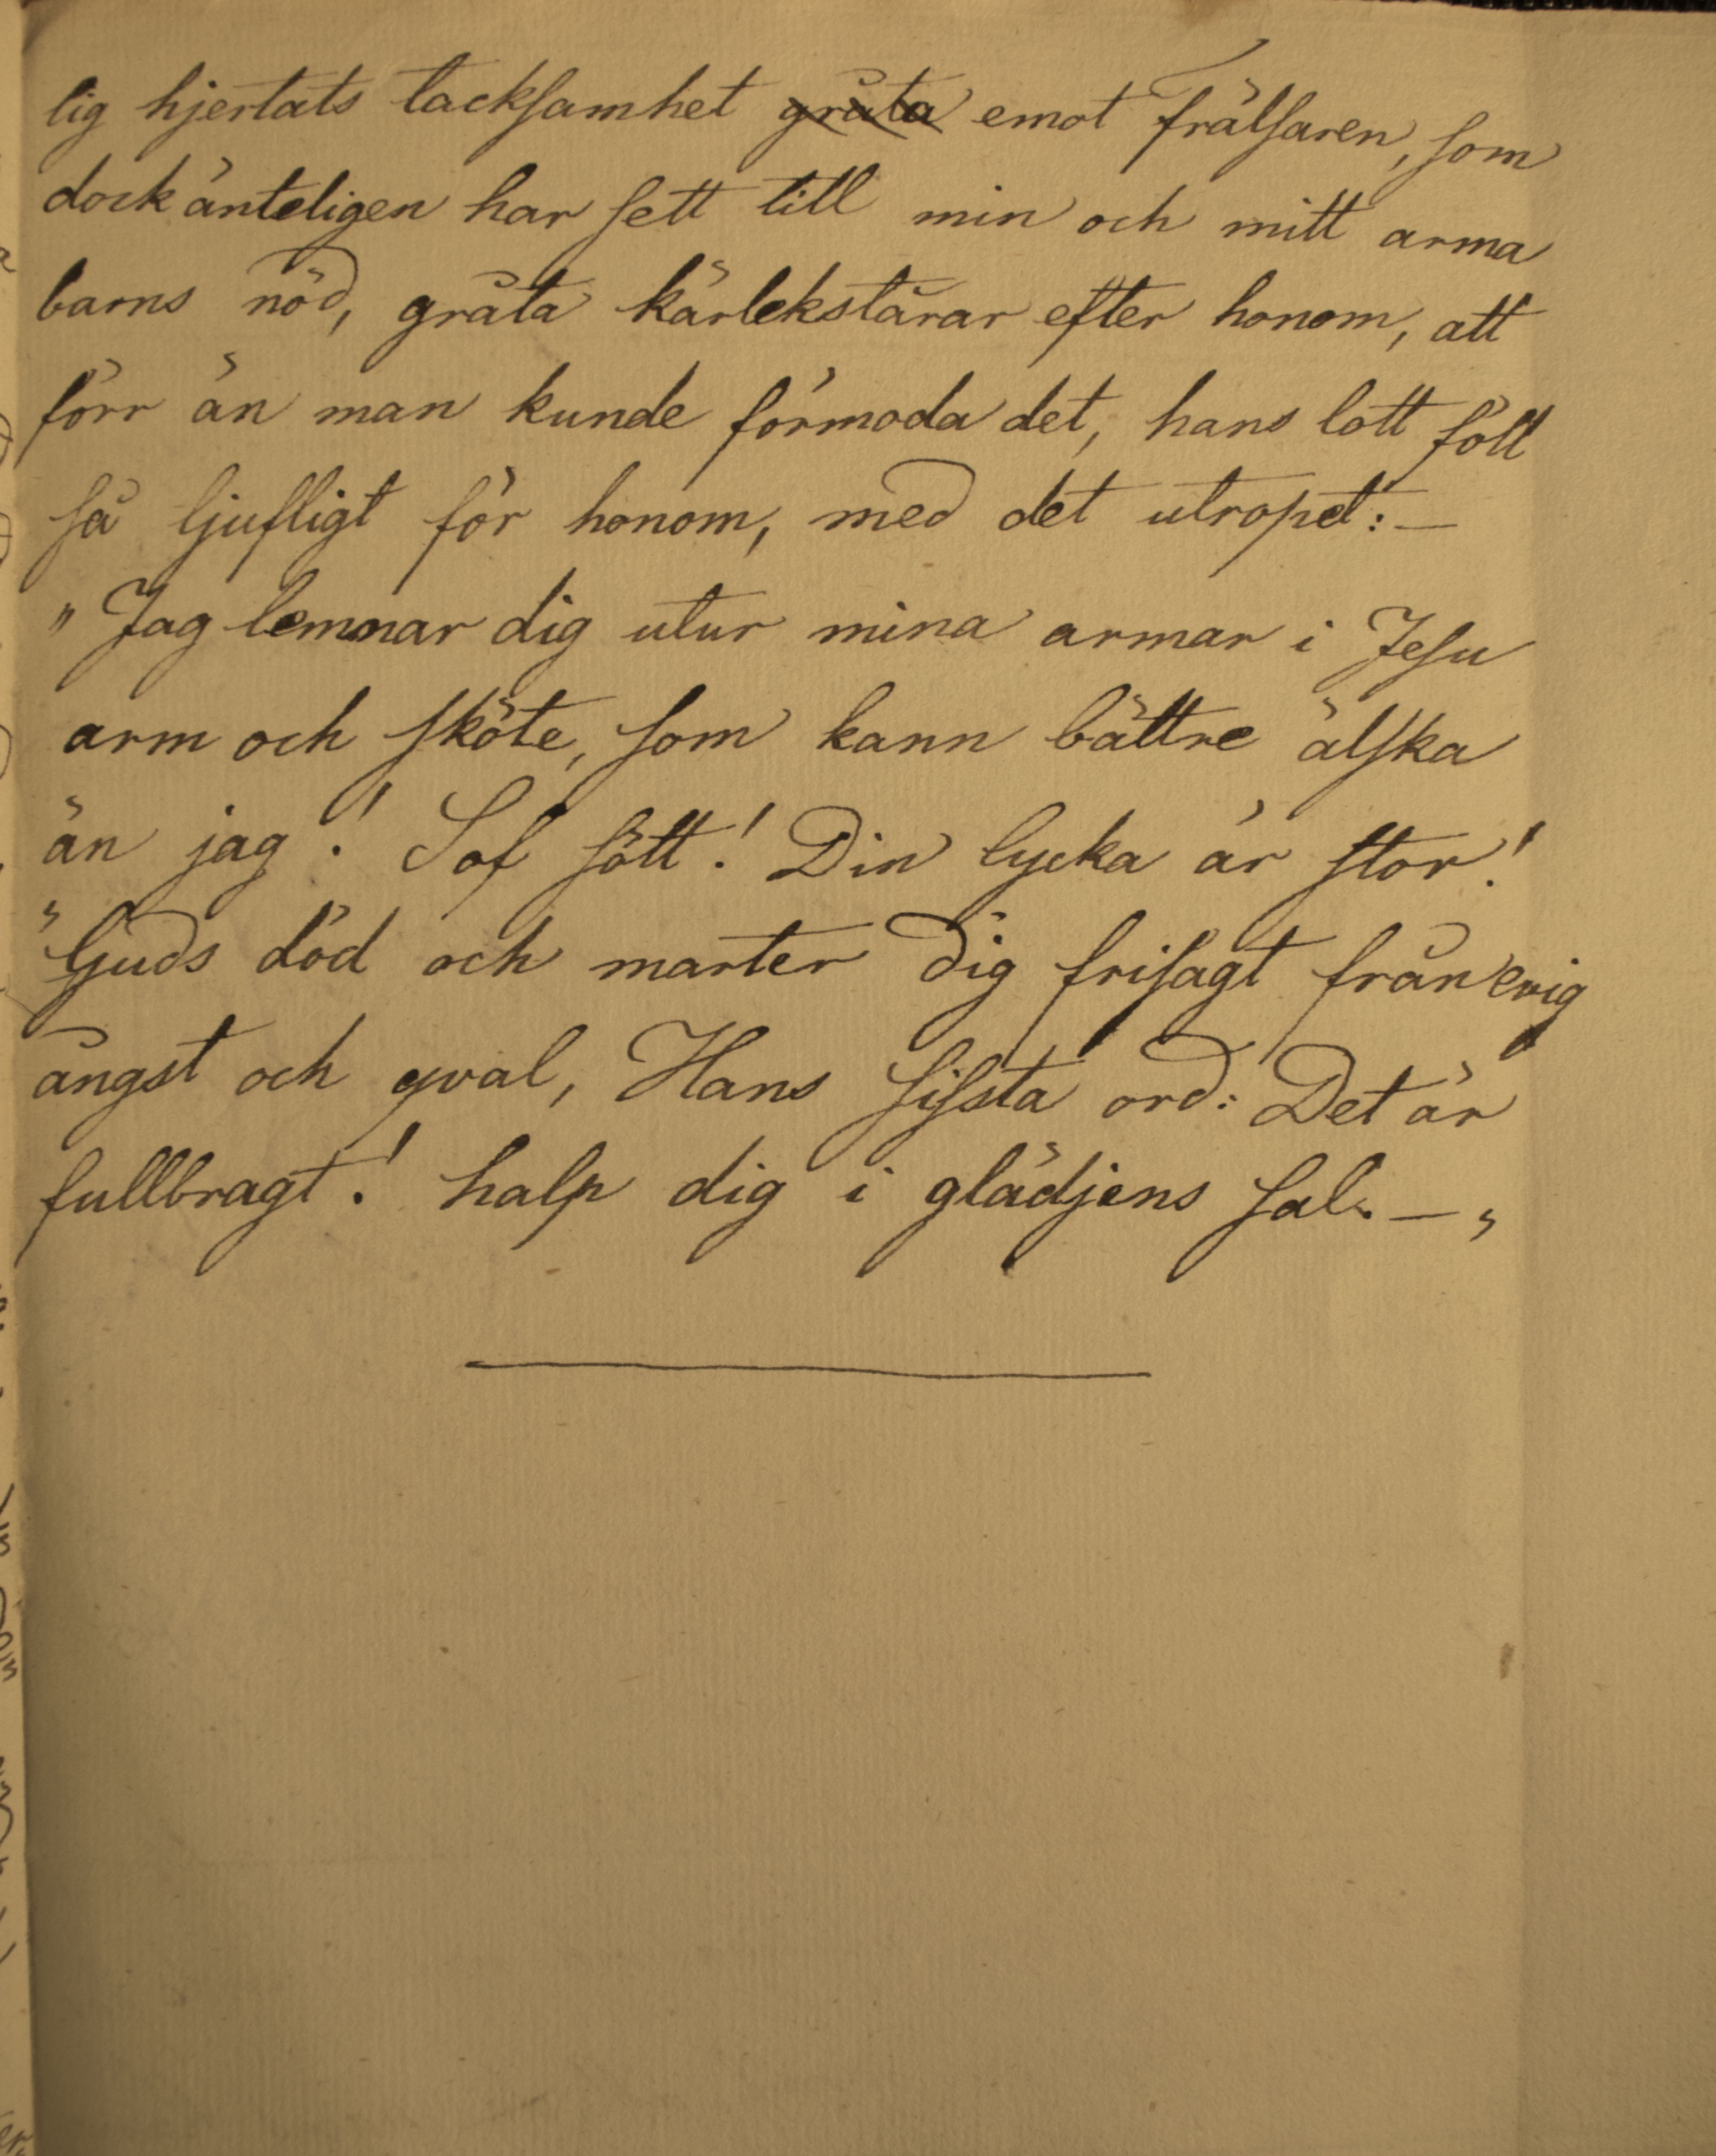 lig hjertats tacksamhet gråta emot frälsaren, som
dock änteligen har sett till min och mitt arma
barns nöd, gråta kärlekstårar efter honom, att
förr än man kunde förmoda det, hans lott föll
så ljufligt för honom, med det utropet: —
„Jag lemnar dig utur mina armar i Jesu
arm och sköte, som kann bättre älska
än jag! Sof sött! Din lycka är stor!
"Guds död och marter dig frisagt från evig
ångst och qval, Hans sista ord: Det är
fullbragt! halp dig i glädjens sal. — „